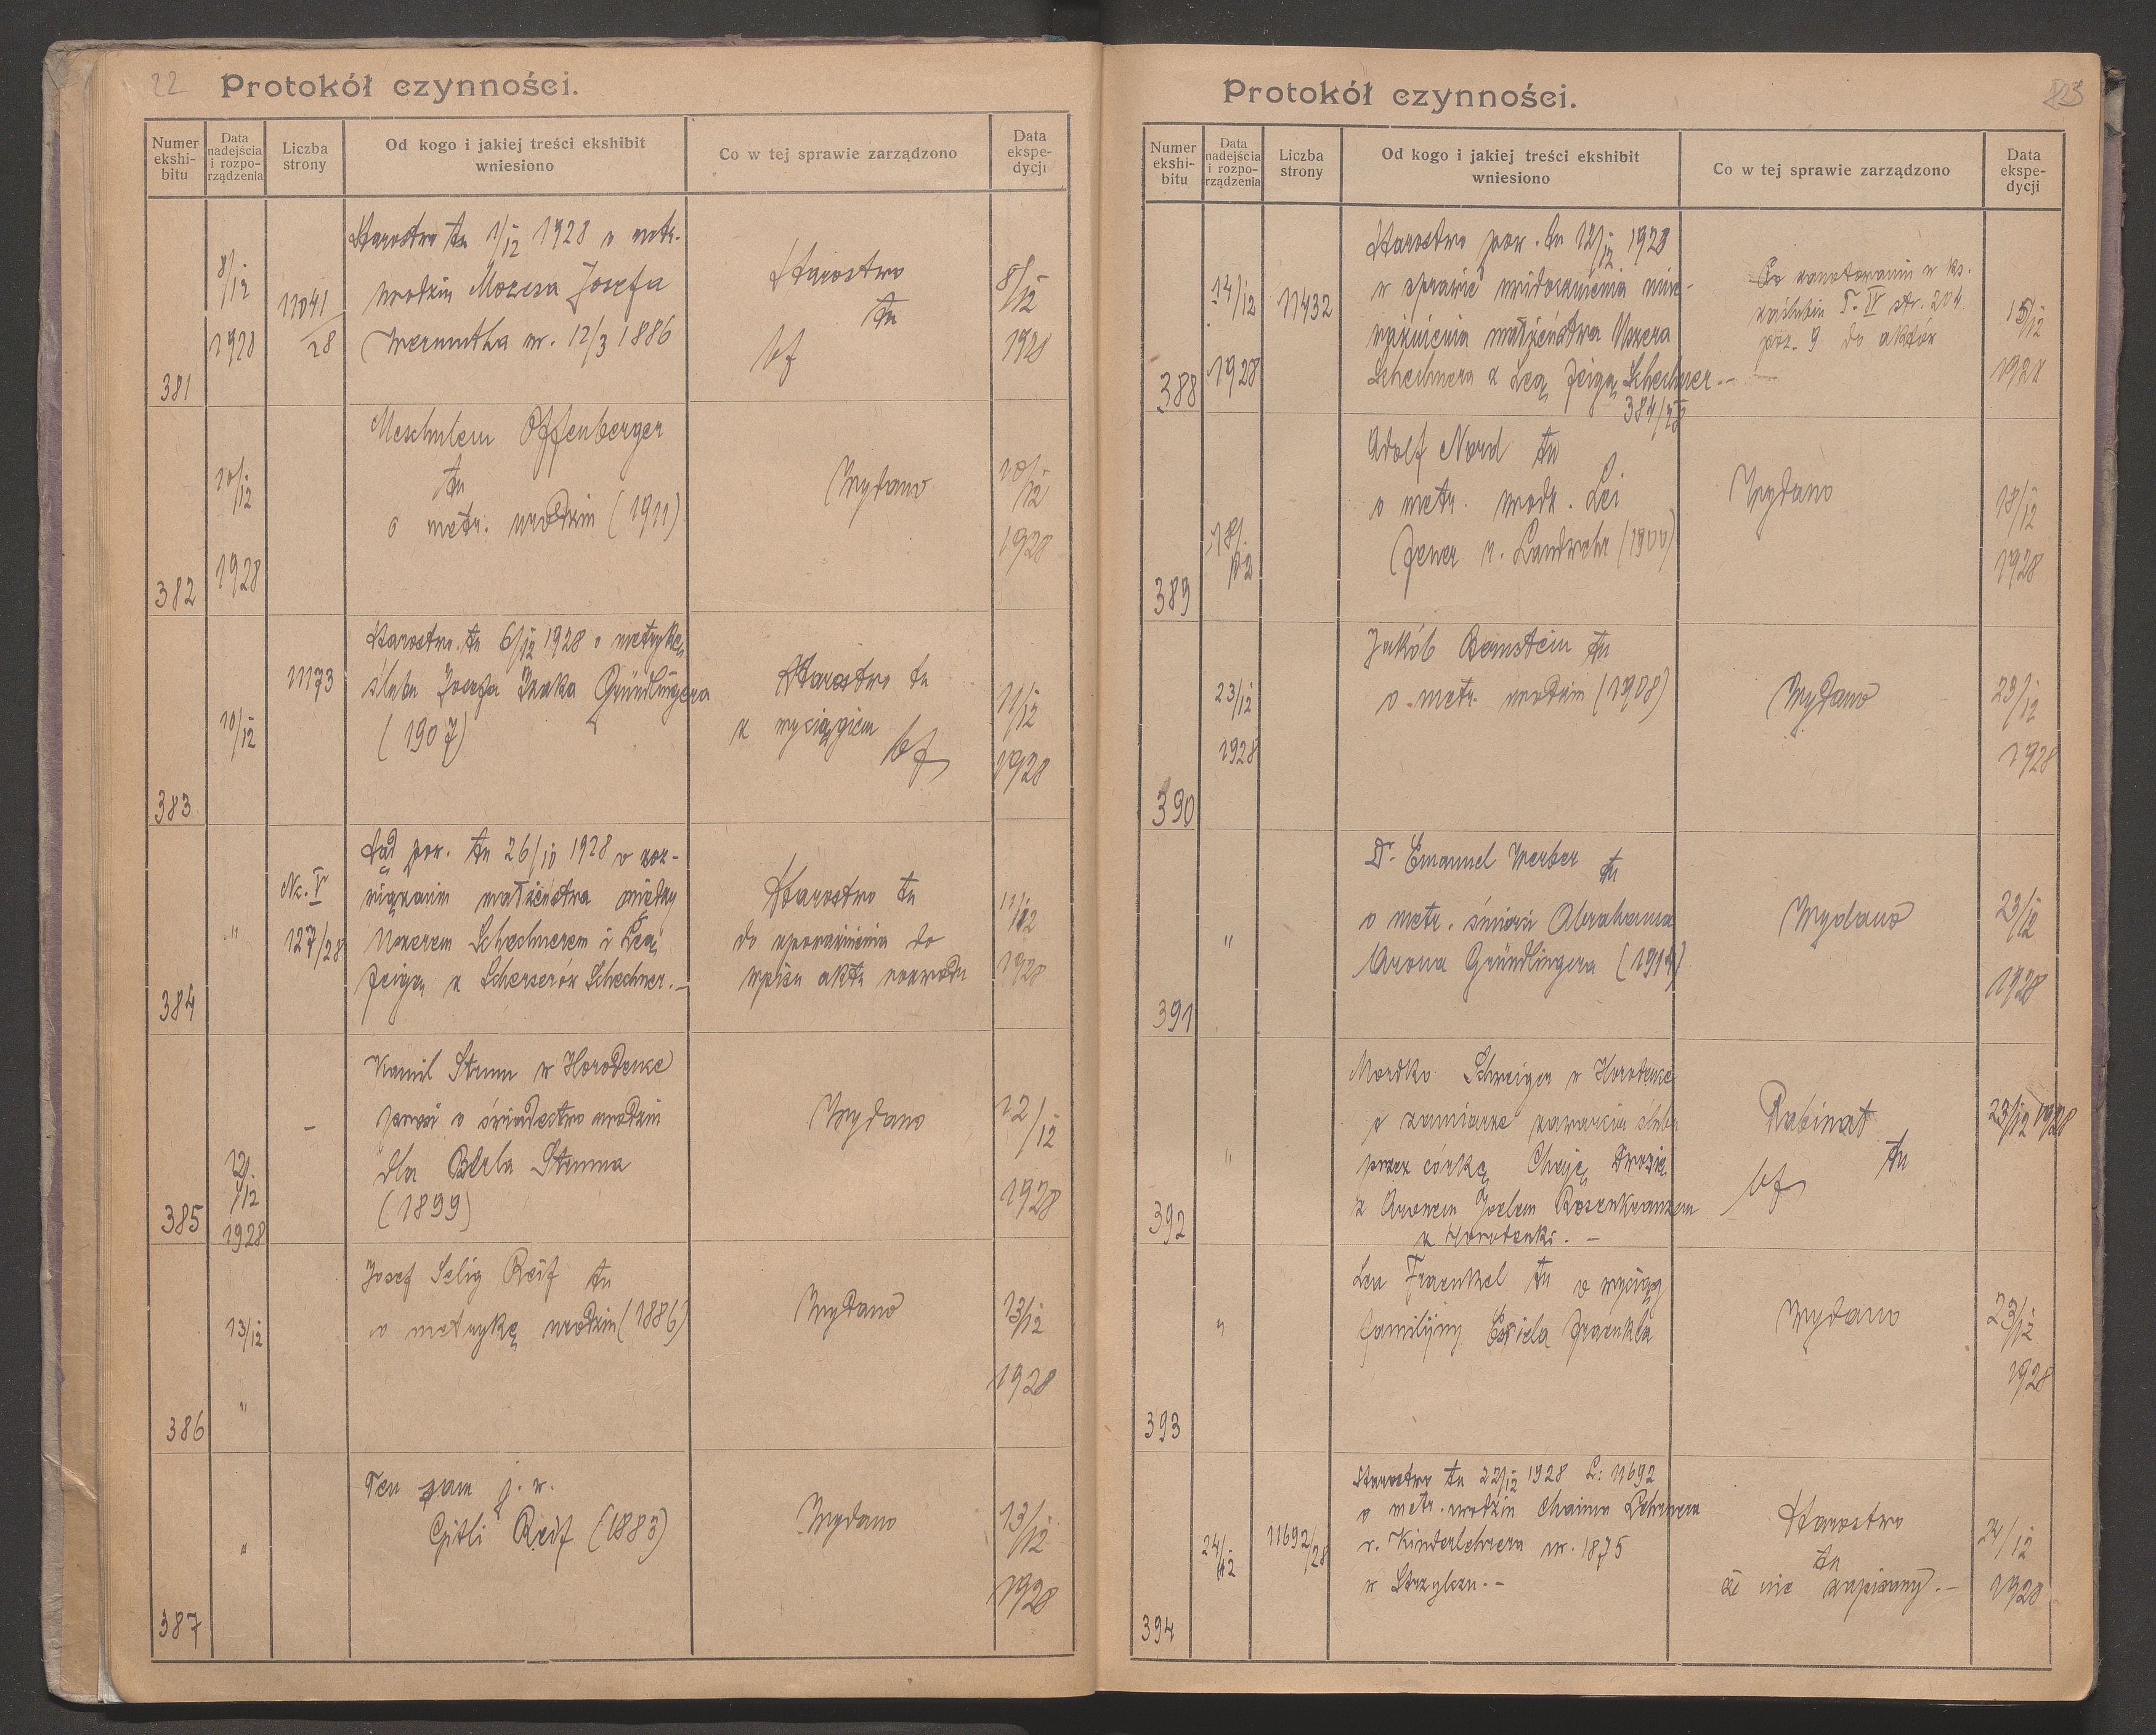 22
Protokół czynności.
Numer ekshi-bitu
Data nadejścia i rozpo-rządzenia
Liczba strony
Od kogo i jakiej treści ekshibit wniesiono
Co w tej sprawie zarządzono
Data ekspe-dycji
381
8/12
1928
11041/28
Starostwo tu 1/12 1928 o metr.
urodzin Mozesa Josefa
Wermutha ur. 12/3 1886
Starostwo
tu
8/12
1928
382
10/12
1928
Meschulem Offenberger
tu
o metr. urodzin (1911)
Wydano
10/12
1928
383
10/12
11173
Starostwo tu 6/12 1928 o metrykę
ślubu Josefa Izaka Gründlingera
(1907)
Starostwo tu
z wyciągiem
11/12
1928
384
"
Nc. V
127/28
Sąd pow. tu 26/10 1928 o roz-
wiązaniu małżeństwa między
Uszerem Schechnerem i Leą
Feigą z Scherzerów Schechner.-
Starostwo tu
do upoważnienia do
wpisu aktu rozwodu
11/12
1928
385
12/12
1928
-
Kamil Strum w Horodence
prosi o świadectwo urodzin
dla Berla Struma
(1899)
Wydano
12/12
1928
386
13/12
"
Josef Selig Reif tu
o metrykę urodzin (1886)
Wydano
13/12
1928
387
"
Ten sam j. w.
Gitli Reif (1883)
Wydano
13/12
1928
Protokół czynności.
23
Numer ekshi-bitu
Data nadejścia i rozpo-rządzenia
Liczba strony
Od kogo i jakiej treści ekshibit wniesiono
Co w tej sprawie zarządzono
Data ekspe-dycji
388
14/12
1928
11432
Starostwo pow. tu 12/12 1928
w sprawie uwidocznienia unie-
ważnienia małżeństwa Uszera
Schechnera z Leą Feigą Schechner.-
384/28
Po zanotowaniu w ks.
zaślubin T. IV str. 204
poz. 9 do aktów
15/12
1928
389
18/12
Adolf Nord tu
o metr. urodz. Lei
Fener v. Landwehr (1900)
Wydano
18/12
1928
390
23/12
1928
Jakób Bernstein tu
o metr. urodzin (1908)
Wydano
23/12
1928
391
"
Dr. Emanuel Werber tu
o metr. śmierci Abrahama
Arona Gründlingera (1914)
Wydano
23/12
1928
392
"
Mordko Schweiger w Horodence
o zamiarze zawarcia ślubu
przez córkę Chaję
z Aronem Joelem Rosenkranzem
z Horodenki. -
Rabinat
tu
23/12 1928
393
"
Lea Fraenkel tu o wyciąg
familijny Fraenkla
Wydano
23/12
1928
394
24/12
11692/28
Starostwo tu 22/12 1928 L: 11692
o metr. urodzin Chaima Lehrera
v. Kinderlehrera ur. 1875
w Strzylczu.-
Starostwo
tu
że nie zapisany.-
24/12
1928